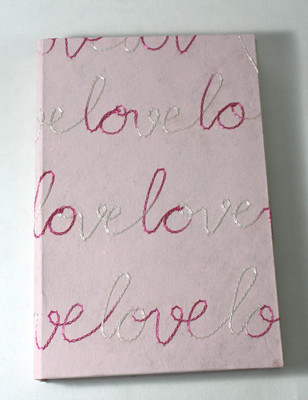 ovelov
velovelo
lovelove
velovelo